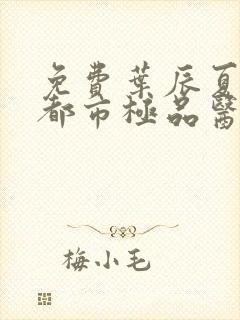 免費葉辰夏
都市極品醫
梅小毛